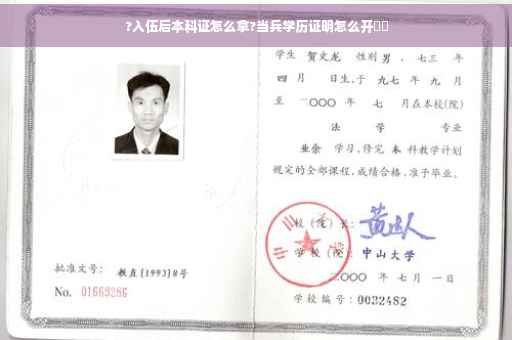 ?入伍后本科证怎么拿?当兵学历证明怎么开
学生 贺文龙 性别 男 、七三 年
四 月 日生,于 九七 年 九 月
至 二〇〇〇 年 七 月在本校(院)
法 学 专业
业余 学习,修完 本 科教学计划
规定的全部课程,成绩合格,准予毕业。
校(院)长:
学校(院): 中山大学
二〇〇〇 年 七 月 一 日
批准文号: 教直[1993]8号
No. 01669286
学校编号:0032482